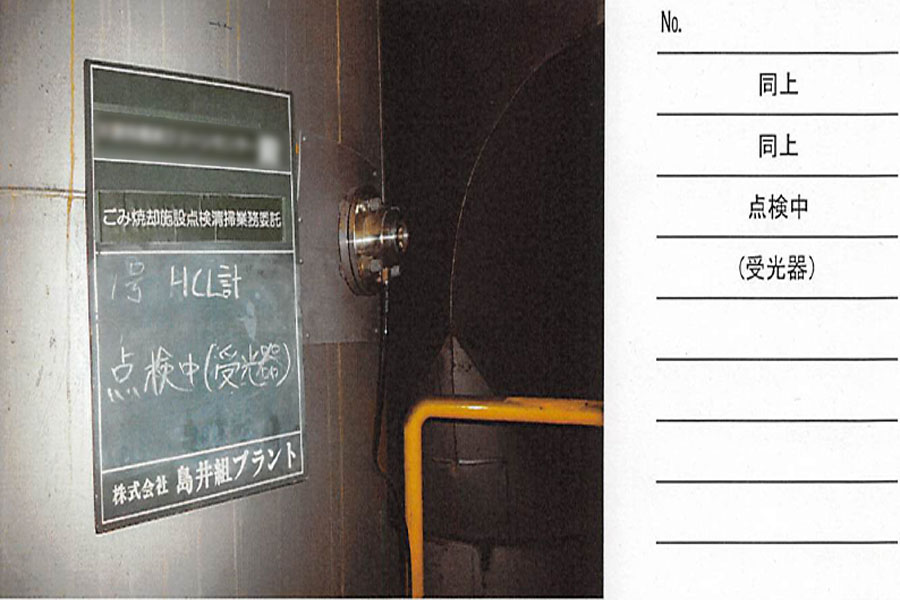 ごみ焼却施設点検清掃業務委託
1号 HCL計
点検中(受光器)
株式会社 島井組プラント
No.
同上
同上
点検中
(受光器)